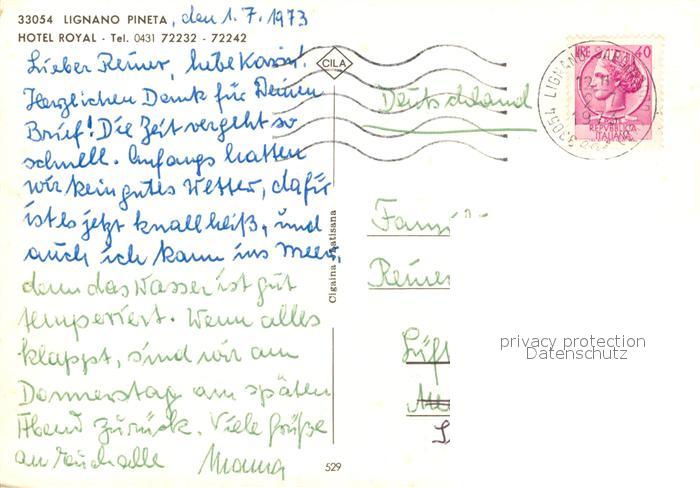 33054 LIGNANO PINETA, den 1.7.1973
HOTEL ROYAL - Tel. 0431 72232 - 72242
Lieber Reiner, liebe Karin!
Herzlichen Dank für Deinen
Brief! Die Zeit vergeht so
schnell. Anfangs hatten
wir kein gutes Wetter, dafür
ist es jetzt knallheiß, und
auch ich kann ins Meer,
denn das Wasser ist gut
temperiert. Wenn alles
klappt, sind wir am
Donnerstag am späten
Abend zurück. Viele Grüße
an Euch alle Mama
CILA
Cigaina Latisana
529
Deutschland
LIRE 40
REPVBBLICA
ITALIANA
33054 LIGNANO
Fami
Reiner
privacy protection
Datenschutz